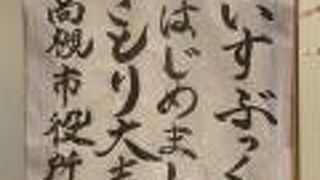 いすぶっく
はじめまし
こもり大き
高槻市役所